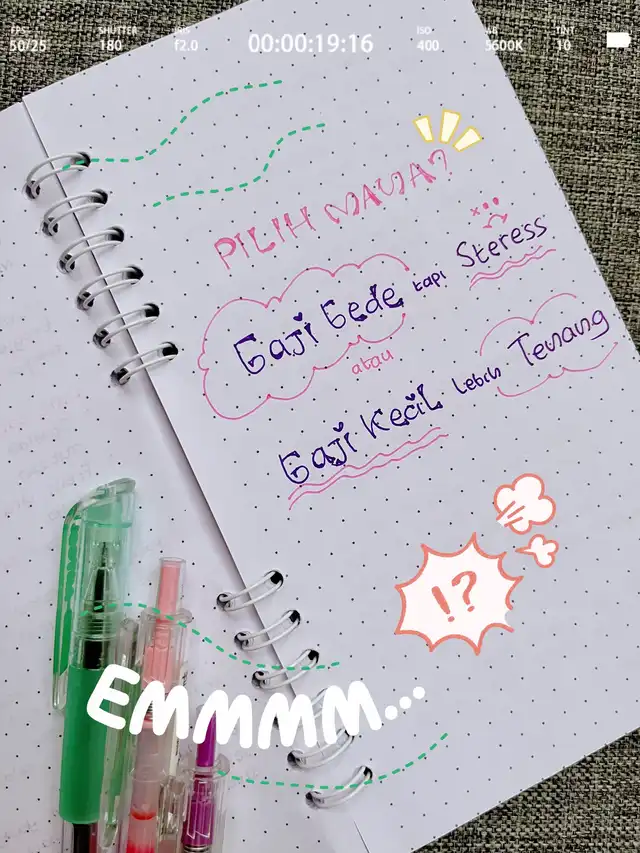 FPS SHUTTER IRIS 00:00:19:16 ISO WB TINT
50/25 180 f2.0 400 5600K 10
PILIH MANA?
Gaji Gede tapi Steress
atau
Gaji Kecil Lebih Tenang
!?
EMMMM...